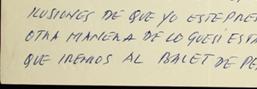 ILUSIONES DE QUE YO ESTE PRE
OTRA MANERA DE LO QUE SI ESPA
QUE IREMOS AL BALET DE PE